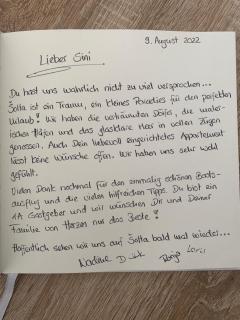 9. August 2022
Lieber Sini
Du hast uns wahrlich nicht zu viel versprochen...
Šolta ist ein Traum, ein kleines Paradies für den perfekten
Urlaub! Wir haben die verträumten Dörfer, die maler-
ischen Häfen und das glasklare Meer in vollen Zügen
genossen. Auch Dein liebevoll eingerichtetes Appartement
lässt keine Wünsche offen. Wir haben uns sehr wohl
gefühlt.
Vielen Dank nochmal für den einmalig schönen Boots-
ausflug und die vielen hilfreichen Tipps. Du bist ein
1A Gastgeber und wir wünschen Dir und Deiner
Familie von Herzen nur das Beste!
Hoffentlich sehen wir uns auf Šolta bald mal wieder...
Nadine